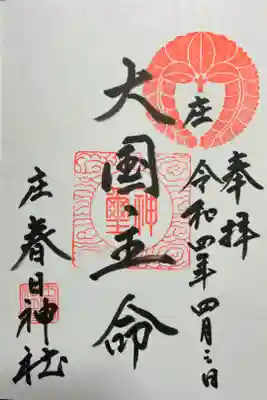 奉拝
令和四年四月三日
庄
大国主命
神璽
庄春日神社